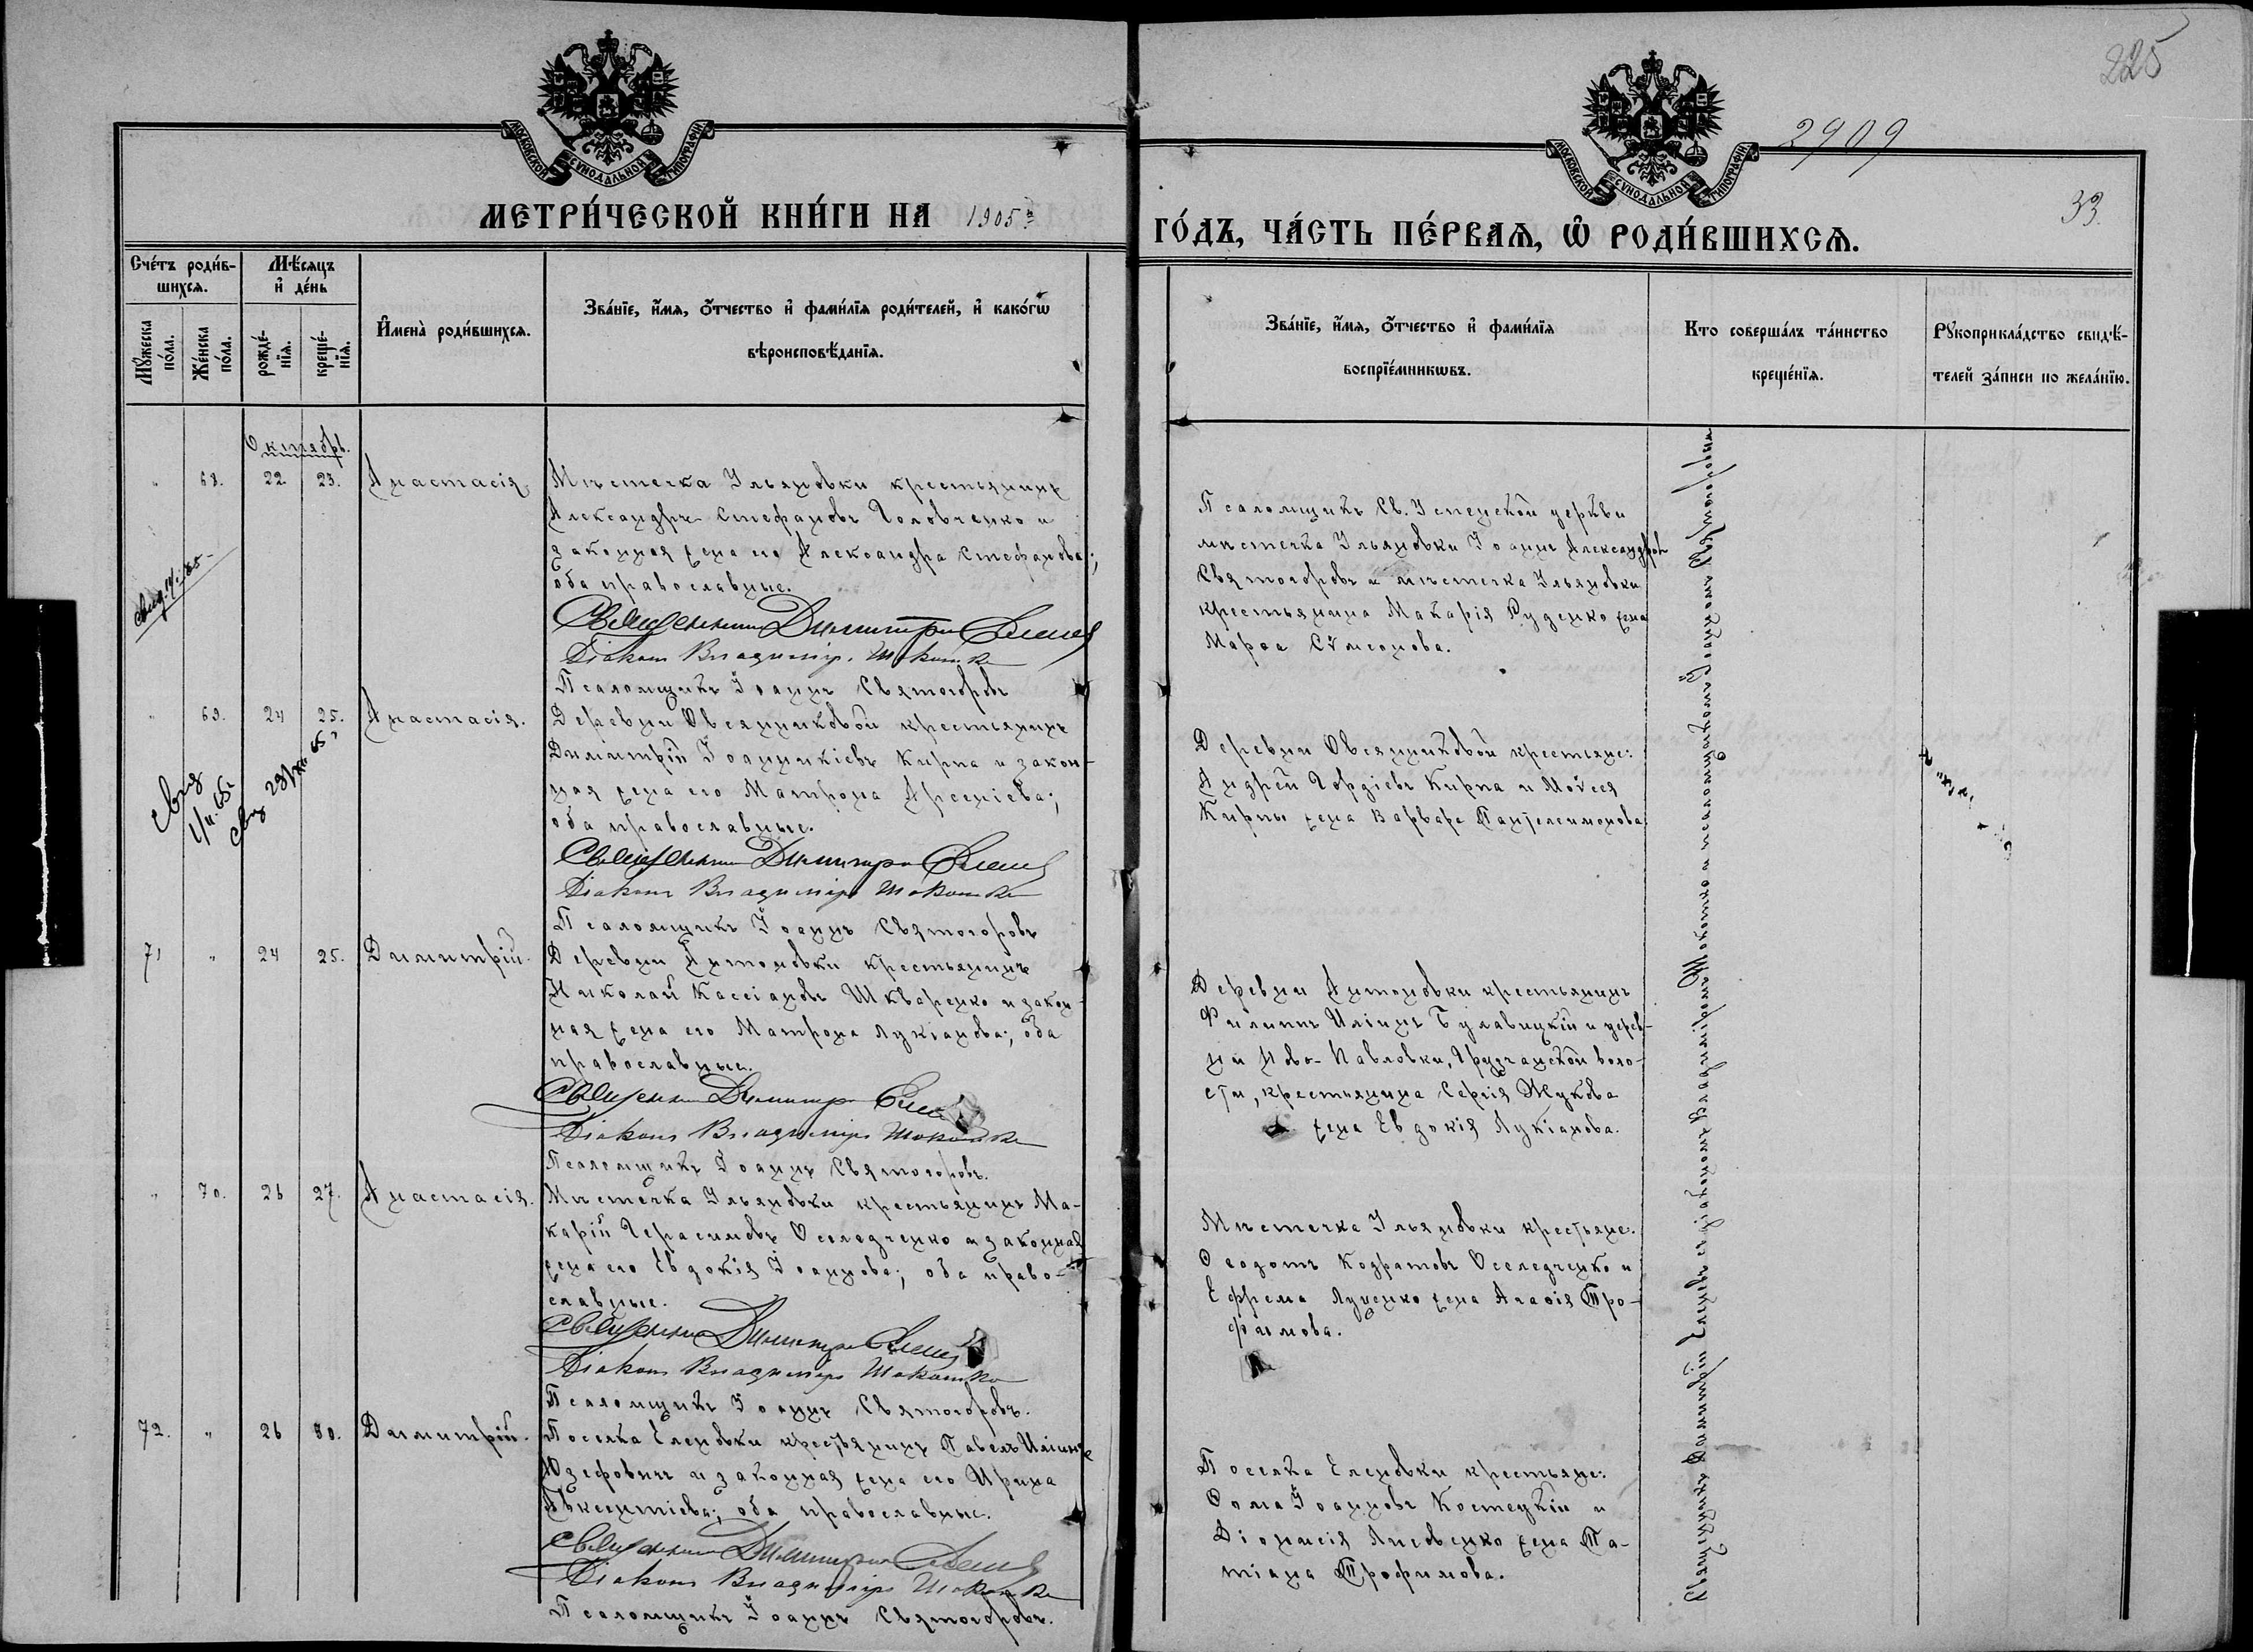 225
2909
33.
МОСКОВСКОЙ СѴНОДАЛЬНОЙ ТИПОГРАФІИ
МОСКОВСКОЙ СѴНОДАЛЬНОЙ ТИПОГРАФІИ
МЕТРИ́ЧЕСКОЙ КНИ́ГИ НА 1905й
ГО́ДЪ, ЧА́СТЬ ПЕ́РВАѦ, Ѡ҆ РОДИ́ВШИХСѦ.
Сче́тъ роди́в-
шихсѧ.
Мꙋ́жеска
по́ла.
Же́нска
по́ла.
Мѣ́сѧцъ
и҆ де́нь
рожде́-
нїѧ.
креще́-
нїѧ.
И҆мена̀ роди́вшихсѧ.
Зва́нїе, и҆́мѧ, ѻ҆́тчество и҆ фами́лїѧ роди́телей, и҆ како́гѡ
вѣроисповѣ́данїѧ.
Зва́нїе, и҆́мѧ, ѻ҆́тчество и҆ фами́лїѧ
воспрїе́мникѡвъ.
Кто соверша́лъ та́инство
креще́нїѧ.
Рꙋкоприкла́дство свидѣ́-
телей за́писи по жела́нїю.
Октябрь.
" 68. 22 23. Анастасія
Мѣстечка Ульяновки крестьянинъ
Александръ Стефановъ Головченко и
законная жена его Александра Стефанова;
оба православные.
Священникъ Димитрій
Діаконъ Владиміръ Шокотко
Псаломщикъ Іоаннъ Святогоровъ
Псаломщикъ Св. Успенской церкви
мѣстечка Ульяновки Іоаннъ Александровъ
Святогоровъ и мѣстечка Ульяновки
крестьянина Макарія Руденко жена
Марѳа Сѵмеонова.
" 69. 24 25. Анастасія.
Деревни Овсянниковой крестьянинъ
Димитрій Іоанникіевъ Кирпа и закон-
ная жена его Матрона Арсеніева;
оба православные.
Священникъ Димитрій
Діаконъ Владиміръ Шокотко
Псаломщикъ Іоаннъ Святогоровъ
Деревни Овсянниковой крестьяне:
Андрей Гордіевъ Кирпа и Моѵсея
Кирпы жена Варвара Пантелеимонова
71 " 24 25. Димитрій.
Деревни Антоновки крестьянинъ
Николай Кассіановъ Шкваренко и закон-
ная жена его Матрона Лукіанова; оба
православные.
Священникъ Димитрій
Діаконъ Владиміръ Шокотко
Псаломщикъ Іоаннъ Святогоровъ.
Деревни Антоновки крестьянинъ
Филиппъ Иліинъ Булавицкій и дерев-
ни Ново-Павловки, воло-
сти, крестьянина Сергія Жукова
жена Евдокія Лукіанова.
" 70. 26 27. Анастасія.
Мѣстечка Ульяновки крестьянинъ Ма-
карій Герасимовъ Оселедченко и законная
жена его Евдокія Іоаннова; оба право-
славные.
Священникъ Димитрій
Діаконъ Владиміръ Шокотко
Псаломщикъ Іоаннъ Святогоровъ.
Мѣстечка Ульяновки крестьяне:
Ѳеодотъ Кодратовъ Оселедченко и
Ефрема Луценко жена Агаѳія Тро-
фимова.
72. " 26 30. Димитрій.
Поселка Еленовки крестьянинъ Павелъ Иліинъ
Юзефовичъ и законная жена его Ирина
Авксентіева; оба православные.
Священникъ Димитрій
Діаконъ Владиміръ Шокотко
Псаломщикъ Іоаннъ Святогоровъ.
Поселка Еленовки крестьяне:
Ѳома Іоанновъ Костецкій и
Діонисія Лисовенко жена Та-
тіана Трофимова.
Священникъ Димитрій Еленевъ съ діакономъ Владиміромъ Шокотко и псаломщикомъ Іоанномъ Святогоровымъ